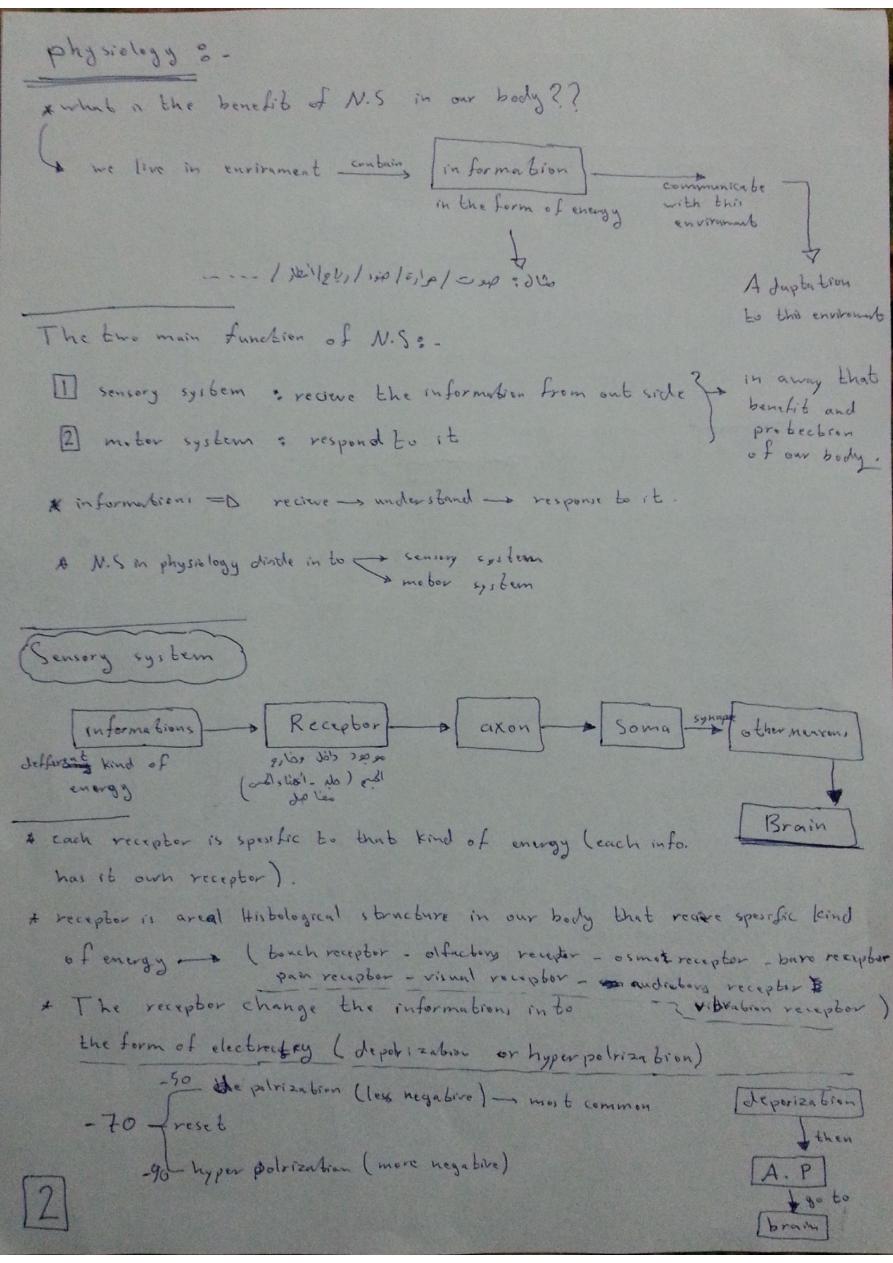 physiology :-
* what is the benefit of N.S in our body??
we live in envirament contain information communicate with this enviroment
in the form of energy
Adaptation to this enviroment
مثال: صوت / حرارة / ضوء / ......
The two main function of N.S:-
1 sensory system : recieve the information from out side
2 motor system : respond to it
in away that benefit and protection of our body.
* informations => recieve → understand → response to it.
* N.S in physiology divide in to → sensory system
→ motor system
Sensory system
informations → Receptor → axon → Soma synapse → other neurons
defferent kind of energy
موجود داخل وخارج
الجسم
مفاصل
Brain
* each receptor is spesific to that kind of energy (each info.
has it own receptor).
* receptor is areal Histological structure in our body that recive spesific kind
of energy → (touch receptor - olfactory receptor - osmot receptor - baro receptor
pain receptor - visual receptor - audiatory receptor
vibration receptor)
* The receptor change the informations in to
the form of electrecity (depolrization or hyperpolrization)
-50 depolrization (less negative) → most common
-70 reset
-90 hyper polrization (more negative)
deporization
then
A.P
go to
brain
2